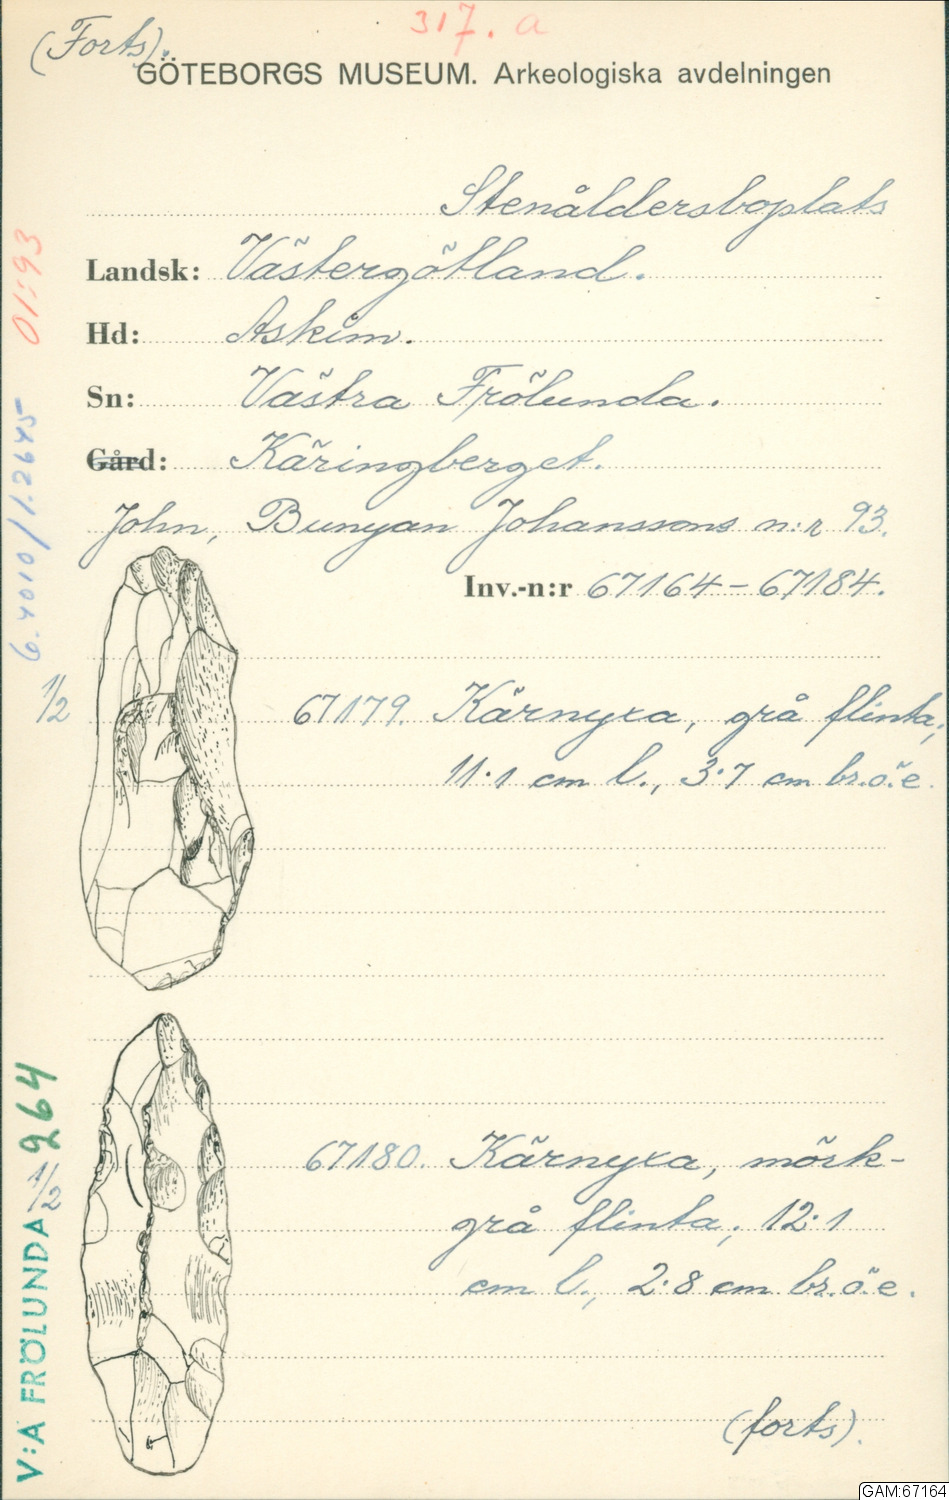 317. a
(Forts).
GÖTEBORGS MUSEUM. Arkeologiska avdelningen
Stenåldersboplats
Landsk: Västergötland.
Hd: Askim.
Sn: Västra Frölunda.
Gård: Käringberget.
John, Bunyan Johanssons n:r 93.
Inv.-n:r 67164-67184.
1/2
67179. Kärnyxa, grå flinta;
11·1 cm l., 3·7 cm br.ö.e.
1/2
67180. Kärnyxa, mörk-
grå flinta; 12·1
cm l., 2·8 cm br.ö.e.
(forts).
01:93
6.4010/1.2645
V:A FRÖLUNDA 264
GAM:67164